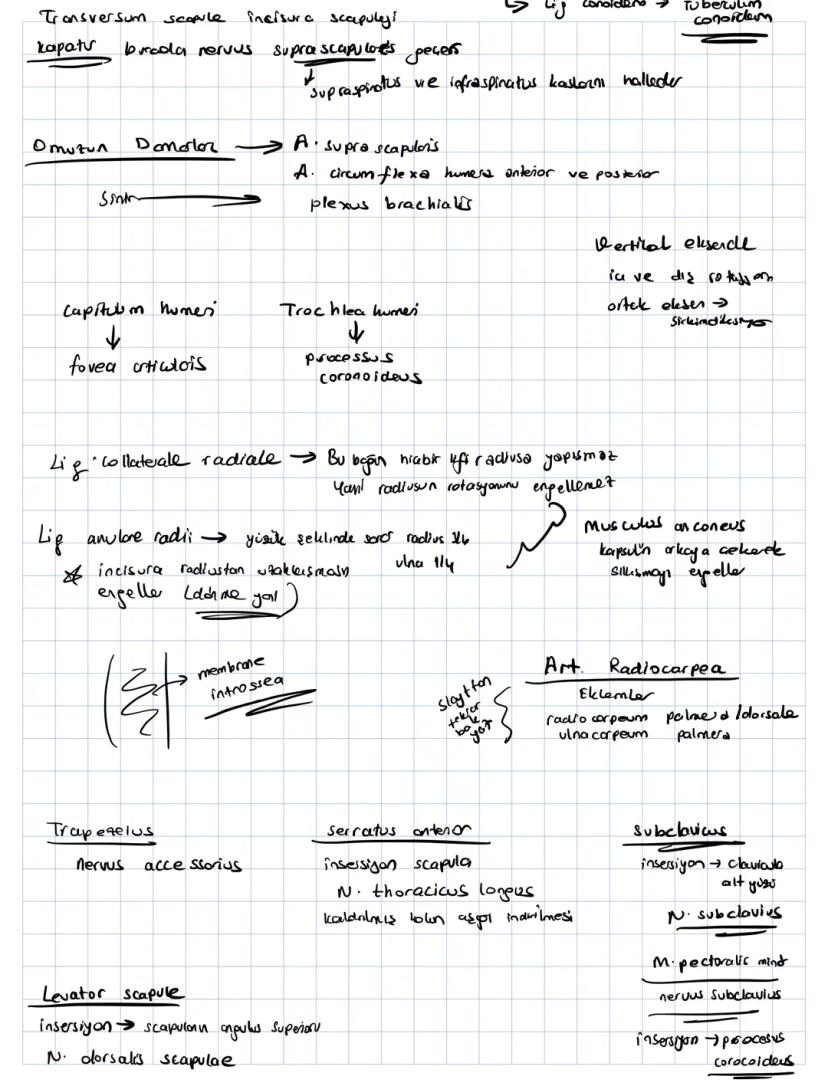 ↳ Lig conoideno → Tuberculum
conoideum
Transversum scapule incisura scapulayi
kapatır burada nervus suprascapularis geçer
↓
supraspinatus ve infraspinatus kaslarını halleder
Omuzun Damarlar → A. suprascapularis
A. circumflexa humera anterior ve posterior
Sinir → plexus brachialis
Vertikal eksende
iç ve dış rotasyon
ortak eksen →
Capitulum humeri
↓
fovea articularis
Trochlea humeri
↓
processus
coronoideus
Lig. collaterale radiale → Bu bağın hiçbir lifi radiusa yapışmaz
Yani radiusun rotasyonunu engellemez
Lig anulare radii → yüzük şeklinde sarar radius 3/4
ulna 1/4
☆ incisura radiustan uzaklaşmasını
engeller
Musculus anconeus
kapsülün arkaya çekerek
sıkışmayı engeller
→ membrane
introssea
Slayttan
tekrar
bak
yaz
Art. Radiocarpea
Eklemler
radiocarpeum palmera/dorsale
ulnacarpeum palmera
Trapezeius
nervus accessorius
Serratus anterior
insersiyon scapula
N. thoracicus longus
kaldırılmış kolun aşağı indirilmesi
Subclavicus
insersiyon → clavicula
alt yüzü
N. subclavius
M. pectoralis minör
nervus subclavius
insersiyon → procesus
corocoideus
Levator scapule
insersiyon → scapulanın angulus superioru
N. dorsalis scapulae